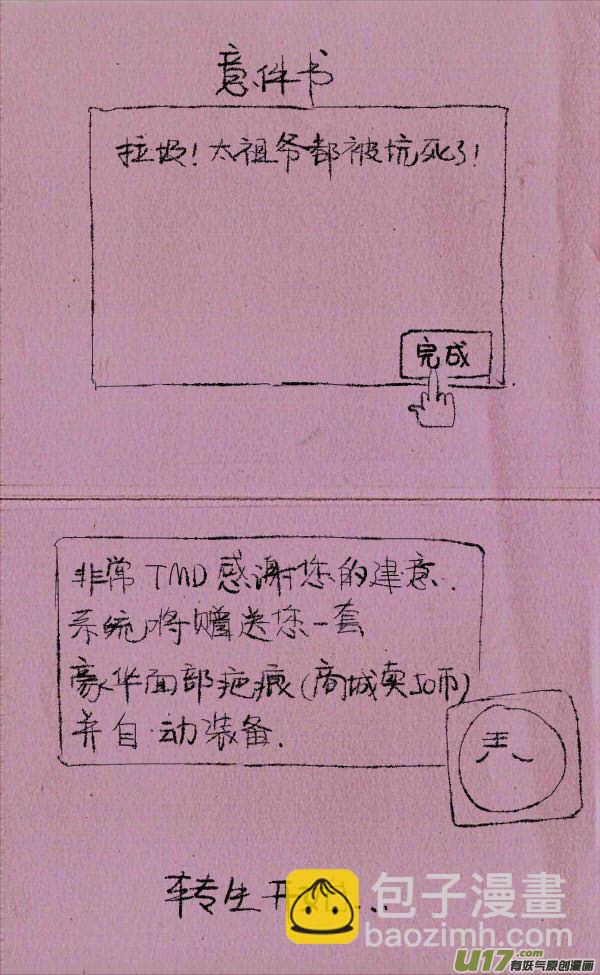 意件书
拉圾！太祖爷都被坑死了！
完成
非常TMD感谢您的建意.
系统将赠送您一套
豪华面部疤痕(商城卖50币)
并自动装备.
王八
转生开
包子漫畫
baozimh.com
U17.com
有妖气原创漫画